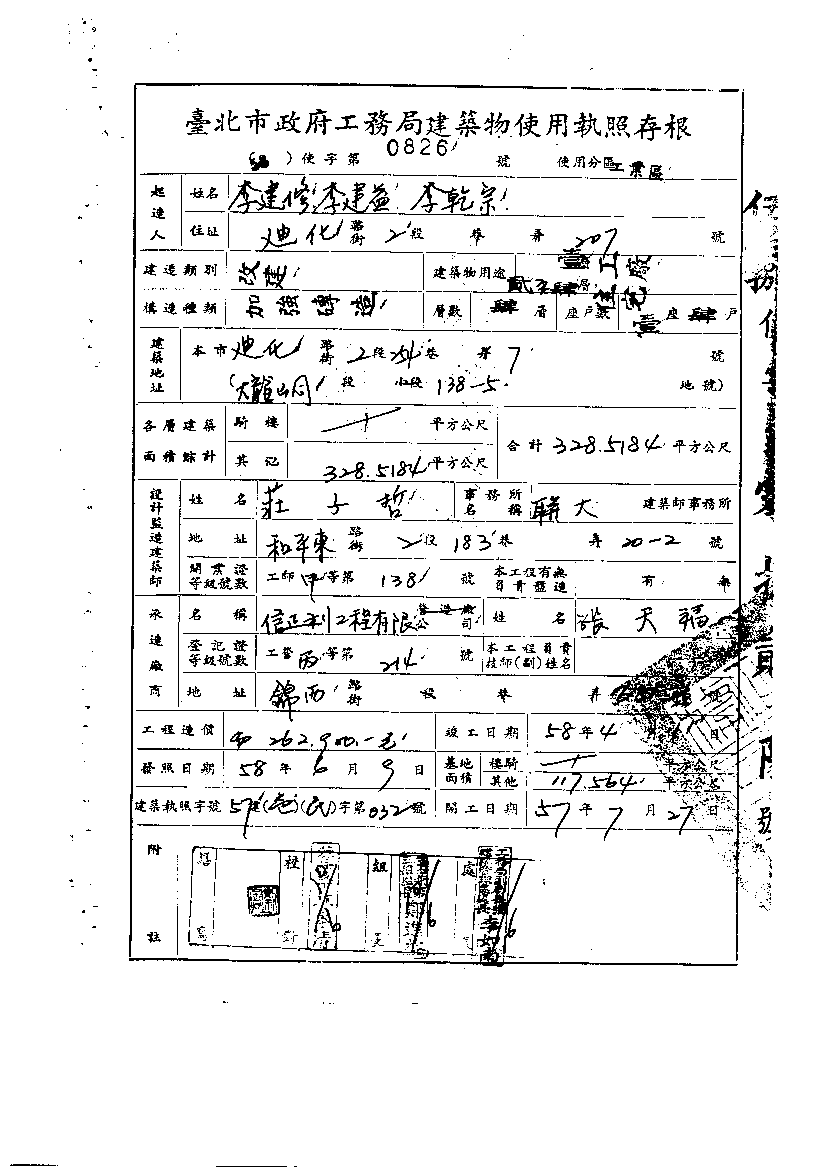 臺北市政府工務局建築物使用執照存根
(58)使字第 0826 號 使用分區 工業區
起造人 姓名 李建修 李建益 李乾宗
住址 迪化 路街 2 段 巷 弄 207 號
建造類別 改建 建築物用途 壹層工廠 貳至肆層住宅
構造種類 加強磚造 層數 肆 層 座戶數 壹 座 肆 戶
建築地址 本市 迪化 路街 2 段 254 巷 弄 7 號
(大龍峒 段 小段 138-5 地號)
各層建築面積綜計 騎樓 平方公尺 合計 328.5184 平方公尺
其記 328.5184 平方公尺
設計監造建築師 姓名 莊子哲 事務所名稱 聯大 建築師事務所
地址 和平東 路街 2 段 183 巷 弄 20-2 號
開業證等級號數 工師 甲 等第 138 號 本工程有無負責監造 有 無
承造廠商 名稱 信正利工程有限 營造廠公司 姓名 張天福
登記證等級號數 工營 丙 等第 214 號 本工程負責技師(副)姓名
地址 錦西 路街 段 巷 弄
工程造價 262,900.- 竣工日期 58 年 4 月 日
發照日期 58 年 6 月 9 日 基地面積 樓騎 平方公尺
其他 117.564 平方公尺
建築執照字號 57 建 (民) 字第 032 號 開工日期 57 年 7 月 27 日
附註 校對 組長 處